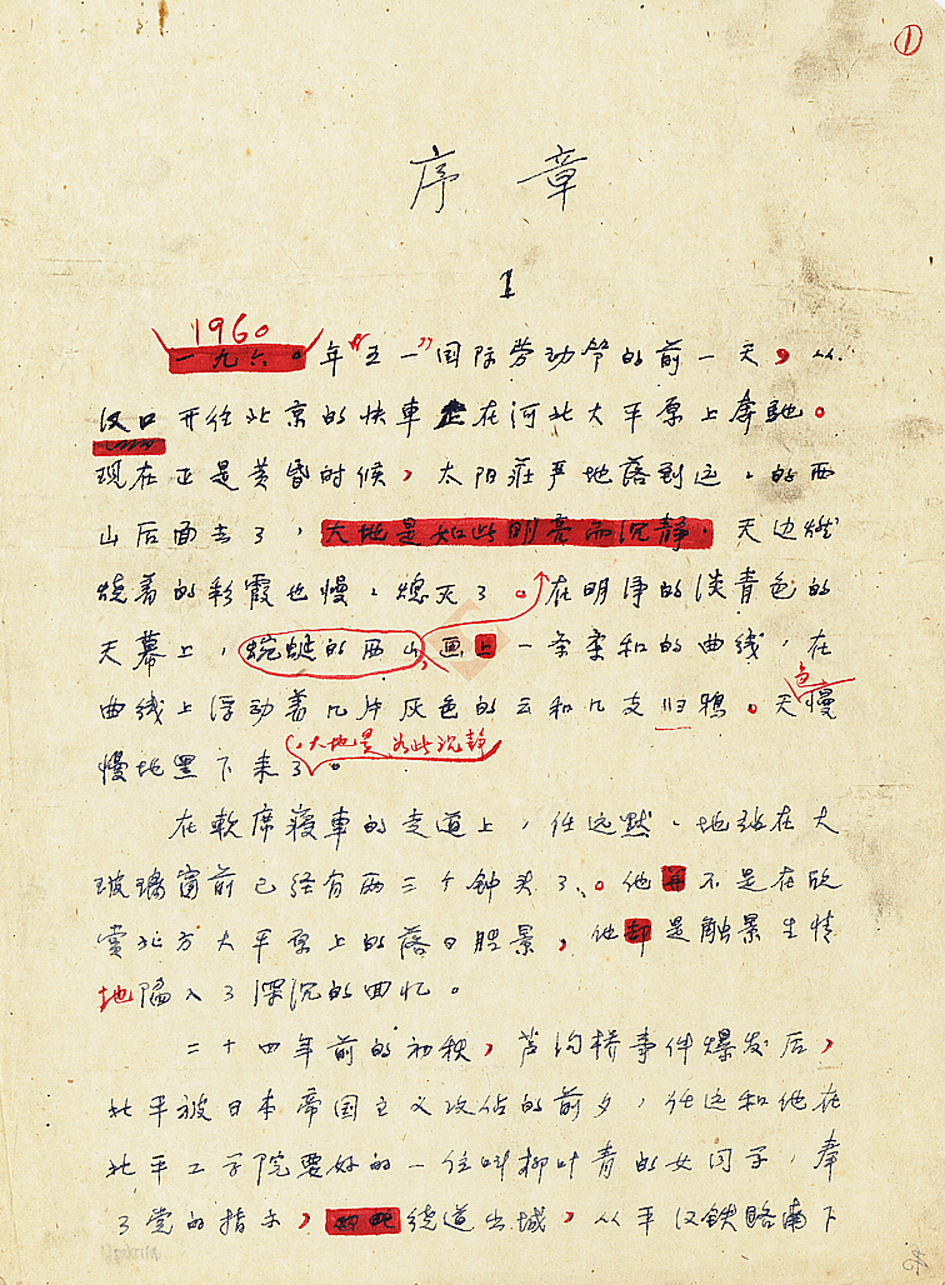 ①
序章
1
1960
一九六〇年“五一”国际劳动节的前一天，从
汉口开往北京的快車正在河北大平原上奔驰。
现在正是黄昏时候，太阳莊严地落到远、的西
山后面去了，大地是如此明亮而沉静。天边燃
烧着的彩霞也慢、熄灭了。在明净的淡青色的
天幕上，蜿蜒的西山，画上一条柔和的曲线，在
曲线上浮动着几片灰色的云和几支归鸦。天色慢
慢地黑下来了。
，大地是如此沉静
在軟席寝車的走道上，任远默、地站在大
玻璃窗前已经有两三个钟头了。他并不是在欣
赏北方大平原上的落日胜景，他却是触景生情
地陷入了深沉的回忆。
二十四年前的初秋，芦沟桥事件爆发后，
北平被日本帝国主义攻佔的前夕，任远和他在
北平工学院要好的一位叫柳叶青的女同学，奉
了党的指示，绕道出城，从平汉铁路南下